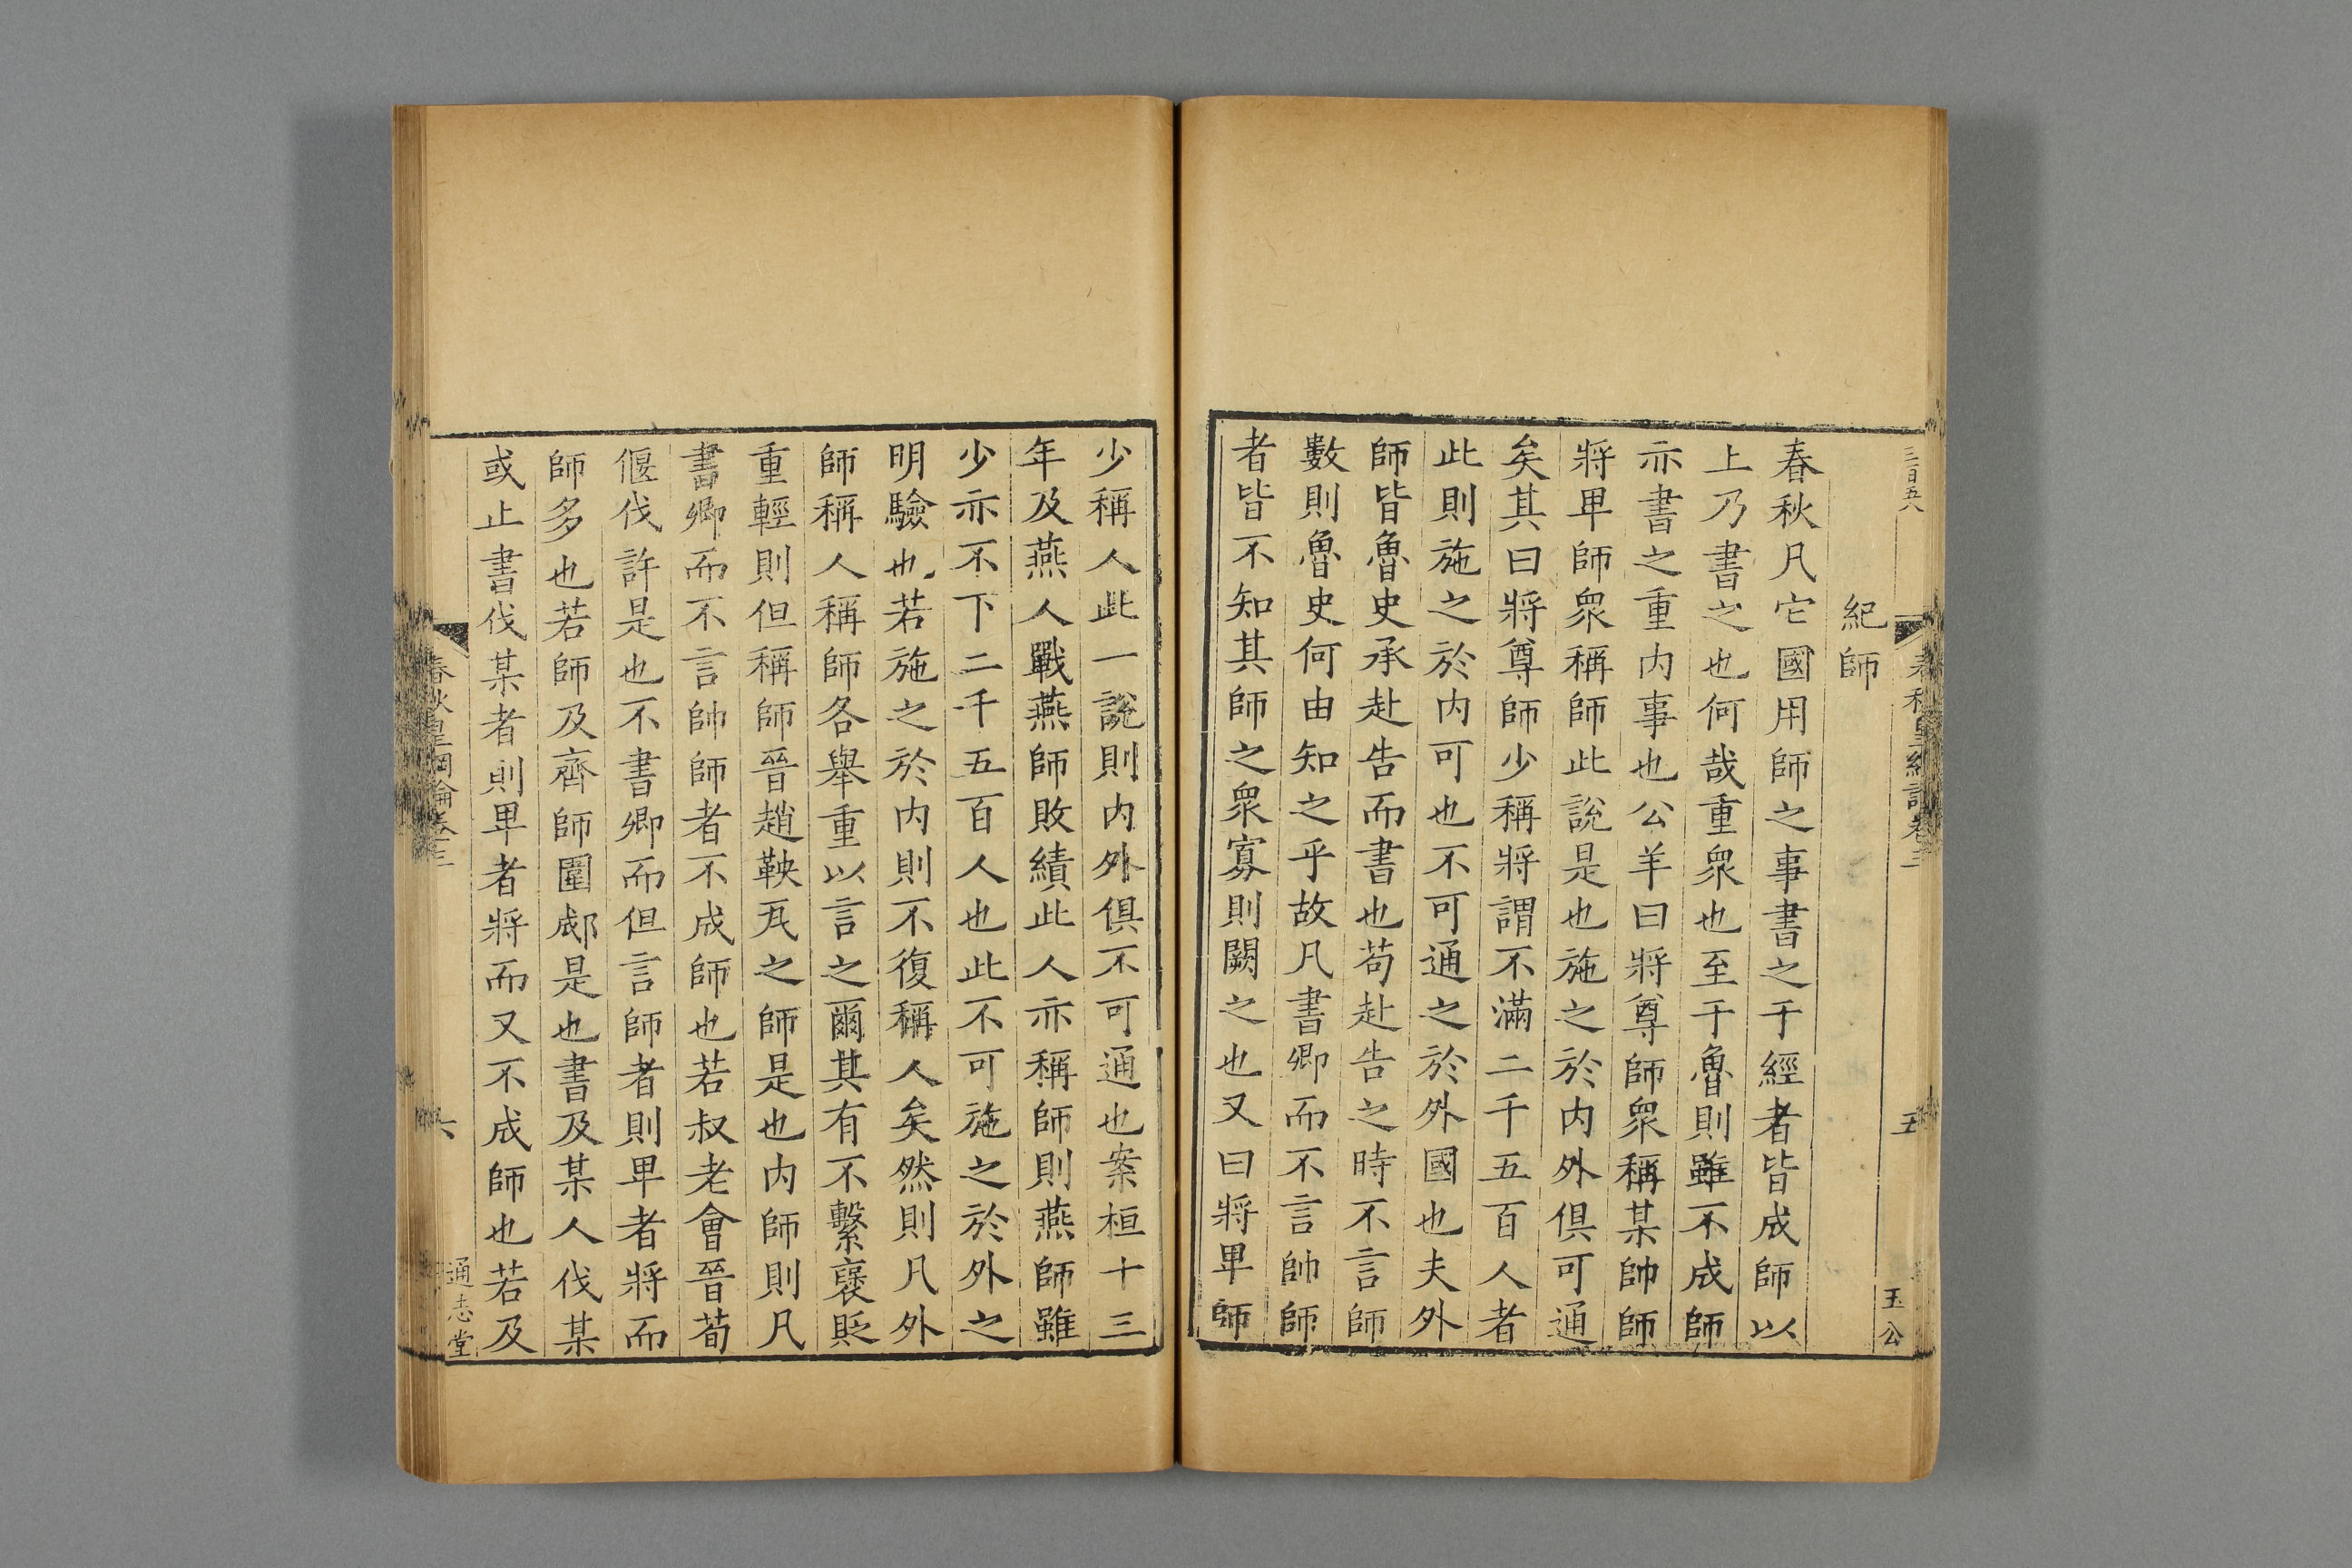 三百五八
春秋皇綱論卷三
五
玉公
紀師
春秋凡它國用師之事書之于經者皆成師以
上乃書之也何哉重衆也至于魯則雖不成師
亦書之重内事也公羊曰將尊師衆稱某帥師
將卑師衆稱師此說是也施之於内外俱可通
矣其曰將尊師少稱將謂不滿二千五百人者
此則施之於内可也不可通之於外國也夫外
師皆魯史承赴告而書也苟赴告之時不言師
數則魯史何由知之乎故凡書卿而不言帥師
者皆不知其師之衆寡則闕之也又曰將卑師
少稱人此一說則内外俱不可通也案桓十三
年及燕人戰燕師敗績此人亦稱師則燕師雖
少亦不下二千五百人也此不可施之於外之
明驗也若施之於内則不復稱人矣然則凡外
師稱人稱師各舉重以言之爾其有不繫襃貶
重輕則但稱師晉趙鞅 之師是也内師則凡
書卿而不言帥師者不成師也若叔老會晉荀
偃伐許是也不書卿而但言師者則卑者將而
師多也若師及齊師圍郕是也書及某人伐某
或止書伐某者則卑者將而又不成師也若及
春秋皇綱論卷三
六
通志堂